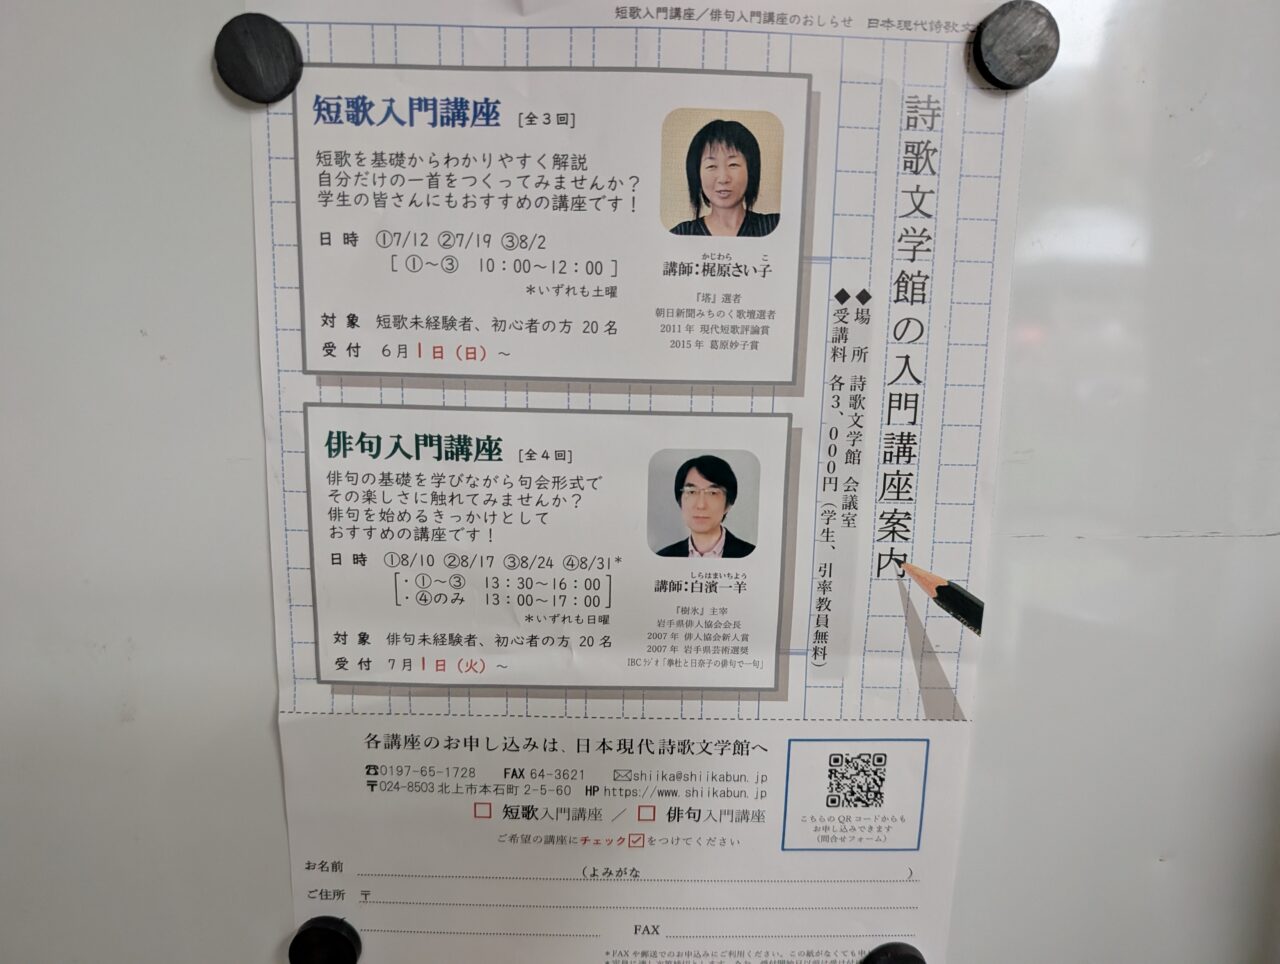 短歌入門講座／俳句入門講座のおしらせ　日本現代詩歌文
詩歌文学館の入門講座案内
◆場　所　詩歌文学館 会議室
◆受講料　各3、000円（学生、引率教員無料）
短歌入門講座　[全3回]
短歌を基礎からわかりやすく解説
自分だけの一首をつくってみませんか？
学生の皆さんにもおすすめの講座です！
日 時　①7/12 ②7/19 ③8/2
[ ①～③　10：00～12：00 ]
＊いずれも土曜
対 象　短歌未経験者、初心者の方 20名
受 付　6月1日（日）～
かじわら　こ
講師：梶原さい子
『塔』選者
朝日新聞みちのく歌壇選者
2011年 現代短歌評論賞
2015年 葛原妙子賞
俳句入門講座　[全4回]
俳句の基礎を学びながら句会形式で
その楽しさに触れてみませんか？
俳句を始めるきっかけとして
おすすめの講座です！
日 時　①8/10 ②8/17 ③8/24 ④8/31*
・①～③　13：30～16：00
・④のみ　13：00～17：00
＊いずれも日曜
対 象　俳句未経験者、初心者の方 20名
受 付　7月1日（火）～
しらはまいちよう
講師：白濱一羊
『樹氷』主宰
岩手県俳人協会会長
2007年 俳人協会新人賞
2007年 岩手県芸術選奨
IBCラジオ「拳杜と日奈子の俳句で一句」
各講座のお申し込みは、日本現代詩歌文学館へ
☎0197-65-1728　FAX 64-3621　✉shiika@shiikabun.jp
〒024-8503 北上市本石町2-5-60　HP https://www.shiikabun.jp
□ 短歌入門講座 ／ □ 俳句入門講座
ご希望の講座にチェック☑をつけてください
こちらのQRコードからも
お申し込みできます
（問合せフォーム）
お名前　（よみがな　）
ご住所　〒
FAX
＊FAXや郵送でのお申込みにご利用ください。この紙がなくても申